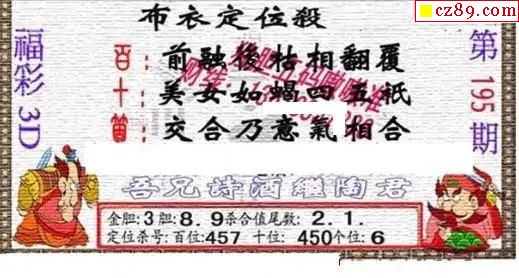 cz89.com
布衣定位殺
福彩3D
第195期
百：前融後枯相翻覆
十：美女如蝎四五祇
箇：交合乃意氣相合
吾兄诗酒繼陶君
金胆:3胆:8.9杀合值尾数:2.1.
定位杀号:百位:457 十位:450个位:6